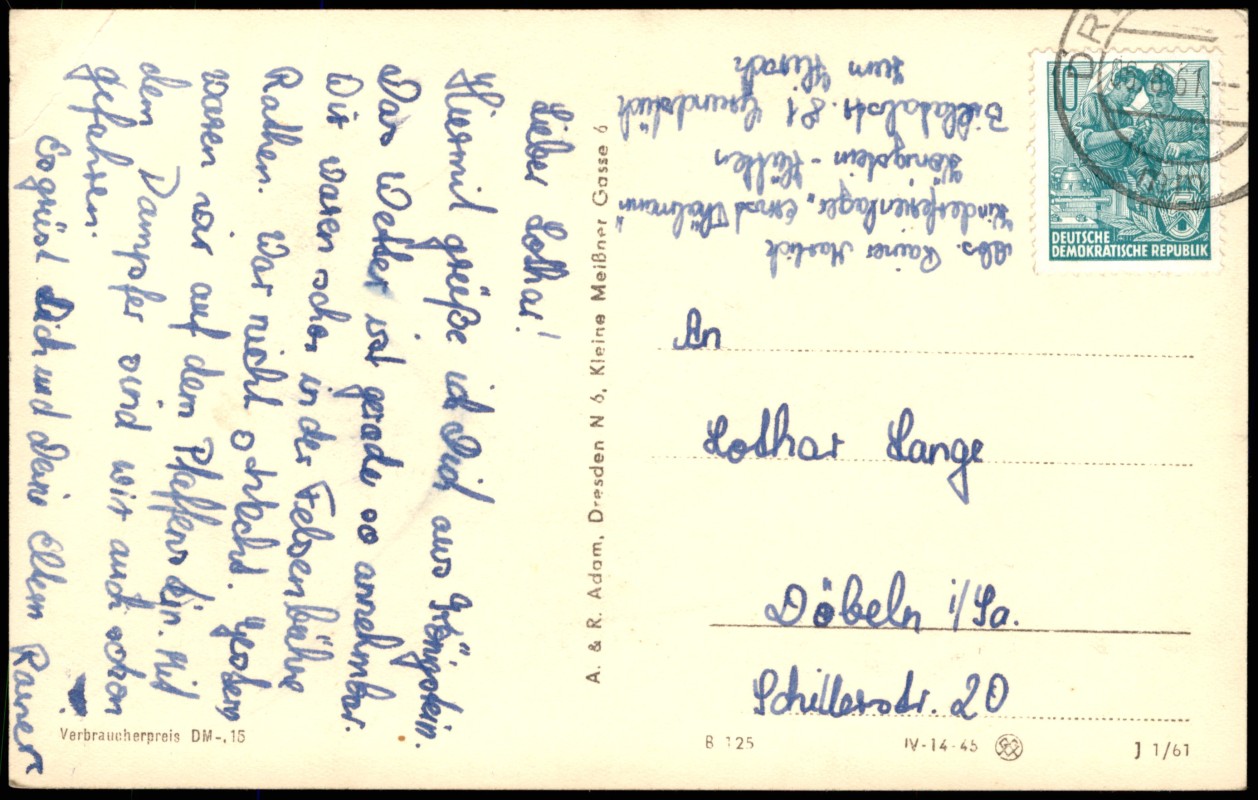 Lieber Lothar!
Hiermit grüße ich Dich aus Königstein.
Das Wetter ist gerade so annehmbar.
Wir waren schon in der Felsenbühne
Rathen. War nicht schlecht. Gestern
waren wir auf dem Pfaffenstein. Mit
dem Dampfer sind wir auch schon
gefahren.
Es grüst Dich und Deine Eltern Rainer
Verbraucherpreis DM-,15
A. & R. Adam, Dresden N 6, Kleine Meißner Gasse 6
Abs. Rainer
Kinderferienlager „Ernst Thälmann"
Königstein - Hütten
Bielatalstr. 81 Grundstück
Herrn Hirsch
10
DEUTSCHE
DEMOKRATISCHE REPUBLIK
8.61
An
Lothar Lange
Döbeln i/Sa.
Schillerstr. 20
B 125
IV-14-45
J 1/61